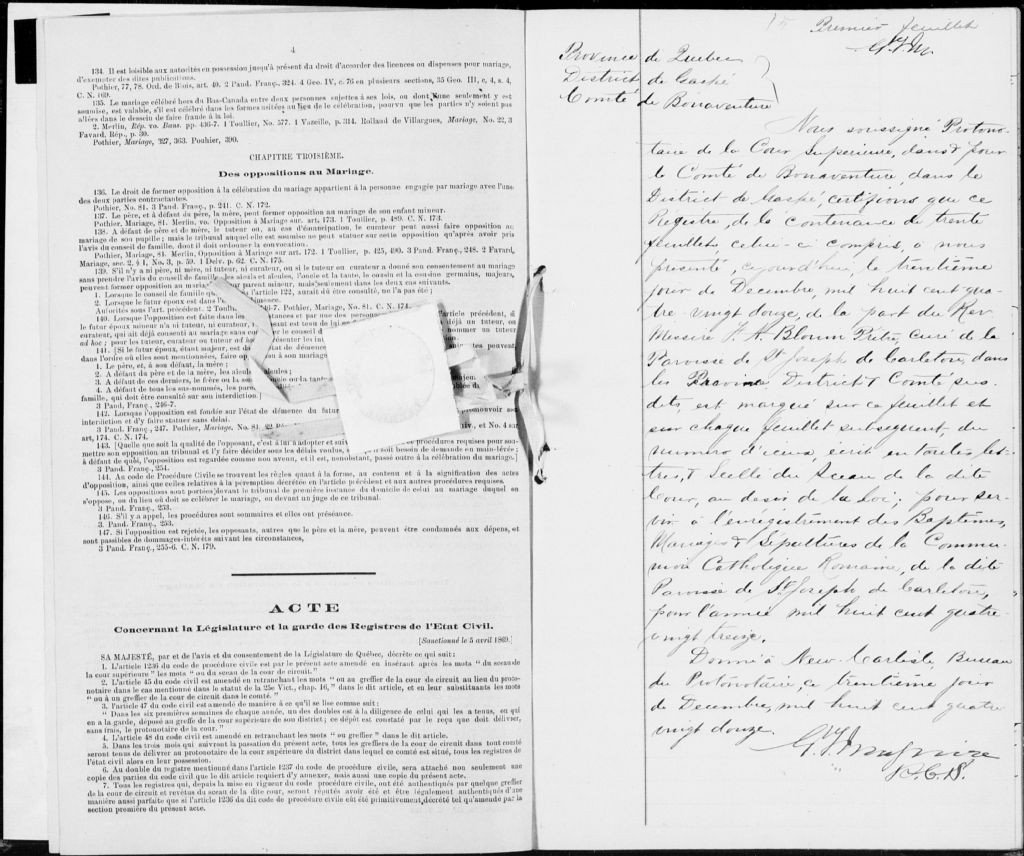 4
134. Il est loisible aux autorités en possession jusqu'à présent du droit d'accorder des licences ou dispenses pour mariage,
d'exempter des dites publications.
Pothier, 77, 78. Ord. de Blois, art. 40. 2 Pand. Franç., 324. 4 Geo. IV, c. 76 en plusieurs sections, 35 Geo. III, c. 4, s. 4,
C. N. 169.
135. Le mariage célébré hors du Bas-Canada entre deux personnes sujettes à ses lois, ou dont une seulement y est
soumise, est valable, s'il est célébré dans les formes usitées au lieu de le célébration, pourvu que les parties n'y soient pas
allées dans le dessein de faire fraude à la loi.
2. Merlin, Rép. vo. Bans. pp. 436-7. 1 Toullier, No. 577. 1 Vazeille, p. 314. Rolland de Villargues, Mariage, No. 22, 3
Favard, Rép., p. 30.
Pothier, Mariage, 327, 363. Pouhier, 390.
CHAPITRE TROISIÈME.
Des oppositions au Mariage.
136. Le droit de former opposition à la célébration du mariage appartient à la personne engagée par mariage avec l'une
des deux parties contractantes.
Pothier, No. 81. 3 Pand. Franç., p. 241. C. N. 172.
137. Le père, et à défaut du père, la mère, peut former opposition au mariage de son enfant mineur.
Pothier, Mariage, 81. Merlin, vo. Opposition à Mariage sur. art. 173. 1 Toullier, p. 489. C. N. 173.
138. A défaut de père et de mère, le tuteur ou, au cas d'émancipation, le curateur peut aussi faire opposition au
mariage de son pupille; mais le tribunal auquel elle est soumise ne peut statuer sur cette opposition qu'après avoir pris
l'avis du conseil de famille, dont il doit ordonner la convocation.
Pothier, Mariage, 81. Merlin, Opposition à Mariage sur art. 172. 1 Toullier, p. 425, 490. 3 Pand. Franç., 248. 2 Favard,
Mariage, sec. 2, § 1, No. 3, p. 59. 1 Delv. p. 62. C. N. 175.
139. S'il n'y a ni père, ni mère, ni tuteur, ni curateur, ou si le tuteur ou curateur a donné son consentement au mariage
sans prendre l'avis du conseil de famille, les aïeuls et aïeules, l'oncle et la tante, le cousin et la cousine germains, majeurs,
peuvent former opposition au mariage parent mineur, mais seulement dans les deux cas suivants.
1. Lorsque le conseil de famille l'article 122, aurait dû être consulté, ne l'a pas été;
2. Lorsque le futur époux est dans
Autorités sous l'art. précédent. 2 Toullier 46-7. Pothier, Mariage, No. 81. C. N. 174.
140. Lorsque l'opposition est faite dans les tances et par une des personnes l'article précédent, si
le futur époux mineur n'a ni tuteur, ni curateur, est tenu de lui déjà un tuteur, on
curateur, qui ait déjà consenti au mariage sans le conseil d nommer un tuteur
ad hoc; pour les tuteur, curateur ou tuteur ad h senter les
141. [Si le futur époux, étant majeur, est da état de démence tes peuvent,
dans l'ordre où elles sont mentionnées, faire op n à son mariage
1. Le père, et, à son défaut, la mère;
2. A défaut du père et de la mère, les aïeuls aïeules;
3. A défaut de ces derniers, le frère ou la soe
4. A défaut de tous les sus-nommés, les pare
famille, qui doit être consulté sur son interdiction.]
3 Pand. Franç., 246-7.
142. Lorsque l'opposition est fondée sur l'état de démence du futur promouvoir son
interdiction et d'y faire statuer sans délai.
3 Pand. Franç., 247. Pothier, Mariage, No. 81. iv., et No. 4 sur
art, 174. C. N. 174.
143. [Quelle que soit la qualité de l'opposant, c'est à lui à adopter et suiv procédures requises pour sou-
mettre son opposition au tribunal et l'y faire décider sous les délais voulus, soit besoin de demande en main-levée;
à défaut de quoi, l'opposition est regardée comme non avenue, et il est, nonobstant, passé outre à la célébration du mariage.]
3 Pand. Franç., 254.
144. Au code de Procédure Civile se trouvent les règles quant à la forme, au contenu et à la signification des actes
d'opposition, ainsi que celles relatives à la peremption décrétée en l'article précédent et aux autres procédures requises.
145. Les oppositions sont portées devant le tribunal de première instance du domicile de celui au mariage duquel on
s'oppose, ou du lieu où doit se célébrer le mariage, ou devant un juge de ce tribunal.
3 Pand. Franç., 253.
146. S'il y a appel, les procédures sont sommaires et elles ont préséance.
3. Pand. Franç., 253.
147. Si l'opposition est rejetée, les opposants, autres que le père et la mère, peuvent être condamnés aux dépens, et
sont passibles de dommages-intérêts suivant les circonstances,
3 Pand. Franç., 255-6. C. N. 179.
ACTE
Concernant la Législature et la garde des Registres de l'Etat Civil.
[Sanctionné le 5 avril 1869.]
SA MAJESTÉ, par et de l'avis et du consentement de la Législature de Québec, décrète ce qui suit:
1. L'article 1236 du code de procédure civile est par le présent acte amendé en insérant après les mots "du sceau de
la cour supérieure" les mots "ou du sceau de la cour de circuit."
2. L'article 45 du code civil est amendé en retranchant les mots "ou au greffier de la cour de circuit au lieu du proto-
notaire dans le cas mentionné dans le statut de la 25e Vict., chap. 16," dans le dit article, et en leur substituants les mots
"ou à un greffier de la cour de circuit dans le comté."
3. l'article 47 du code civil est amendé de manière à ce qu'il se lise comme suit:
"Dans les six premières semaines de chaque année, un des doubles est à la diligence de celui qui les a tenus, on qui
en a la garde, déposé au greffe de la cour supérieure de son district; ce dépôt est constaté par le reçu que doit délivrer,
sans frais, le protonotaire de la cour."
4. L'article 48 du code civil est amendé en retranchant les mots "ou greffier" dans le dit article.
5. Dans les trois mois qui suivront la passation du présent acte, tous les greffers de la cour de circuit dans tout comté
seront tenus de délivrer au protonotaire de la cour supérieure du district dans lequel ce comté est situé, tous les registres de
l'état civil alors en leur possession.
6. Au double du registre mentionné dans l'article 1237 du code de procédure civile, sera attaché non seulement une
copie des parties du code civil que le dit article requiert d'y annexer, mais aussi une copie du présent acte.
7. Tous les registres qui, depuis la mise en vigueur du code procédure civile, ont été authentiqués par quelque greffier
de la cour de circuit et revêtus du sceau de la dite cour, seront réputés avoir été et être légalement authentiqués d'une
manière aussi parfaite que si l'article 1236 du dit code de procédure civile eût été primitivement décrété tel qu'amendé par la
section première du présent acte.
Premier feuillet
Province de Quebec
District de Gaspé
Comté de Bonaventure
Nous soussigné Protono-
taire de la Cour Superieure, dans & pour
le Comté de Bonaventure, dans le
District de Gaspé, certifions que ce
Registre, de la contenance de trente
feuillets celui-ci compris, a nous
presenté, ce jourd'hui, le trentième
jour de Decembre, mil huit cent qua-
tre-vingt douze, de la part du Rev
Messire J. A. Blouin Prêtre, curé de la
Paroisse de St Joseph de Carleton, dans
les Province, District & Comté sus-
dits, est marqué sur ce feuillet et
sur chaque feuillet subsequent, du
numero d'iceux, ecrit en toutes let-
tres, & Scellé du Sceau de la dite
Cour, au desir de la Loi; pour ser-
vir à l'enrégistrement des Baptêmes,
Mariages & Sépultures de la Commu-
nion Catholique Romaine, de la dite
Paroisse de St Joseph de Carleton,
pour l'année mil huit cent quatre-
vingt treize.
Donné à New-Carlisle, Bureau
du Protonotaire, ce trentième jour
de Decembre, mil huit cent quatre
vingt douze.
P.C.S.